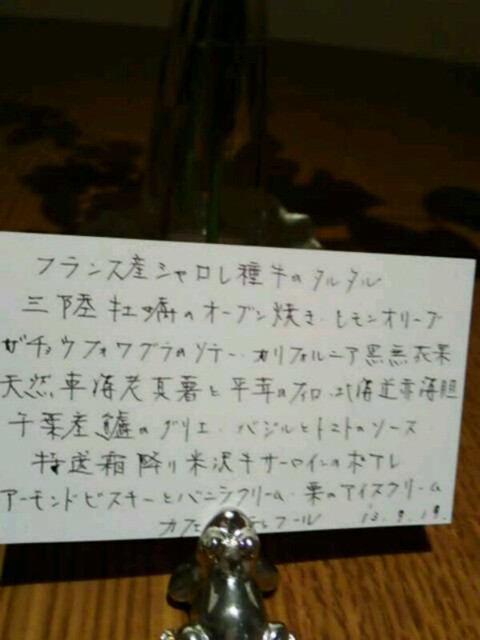 フランス産シャロレ種牛のタルタル
三陸牡蠣のオーブン焼き・レモンオリーブ
ガチョウフォワグラのソテー・カリフォルニア黒無花果
天然車海老真薯と平茸のフィロ・北海道雲海胆
千葉産鱸のグリエ・バジルとトマトのソース
特送霜降り米沢牛サーロインのポアレ
アーモンドビスキーとバニラクリーム・栗のアイスクリーム
カフェ フール 13.9.19.